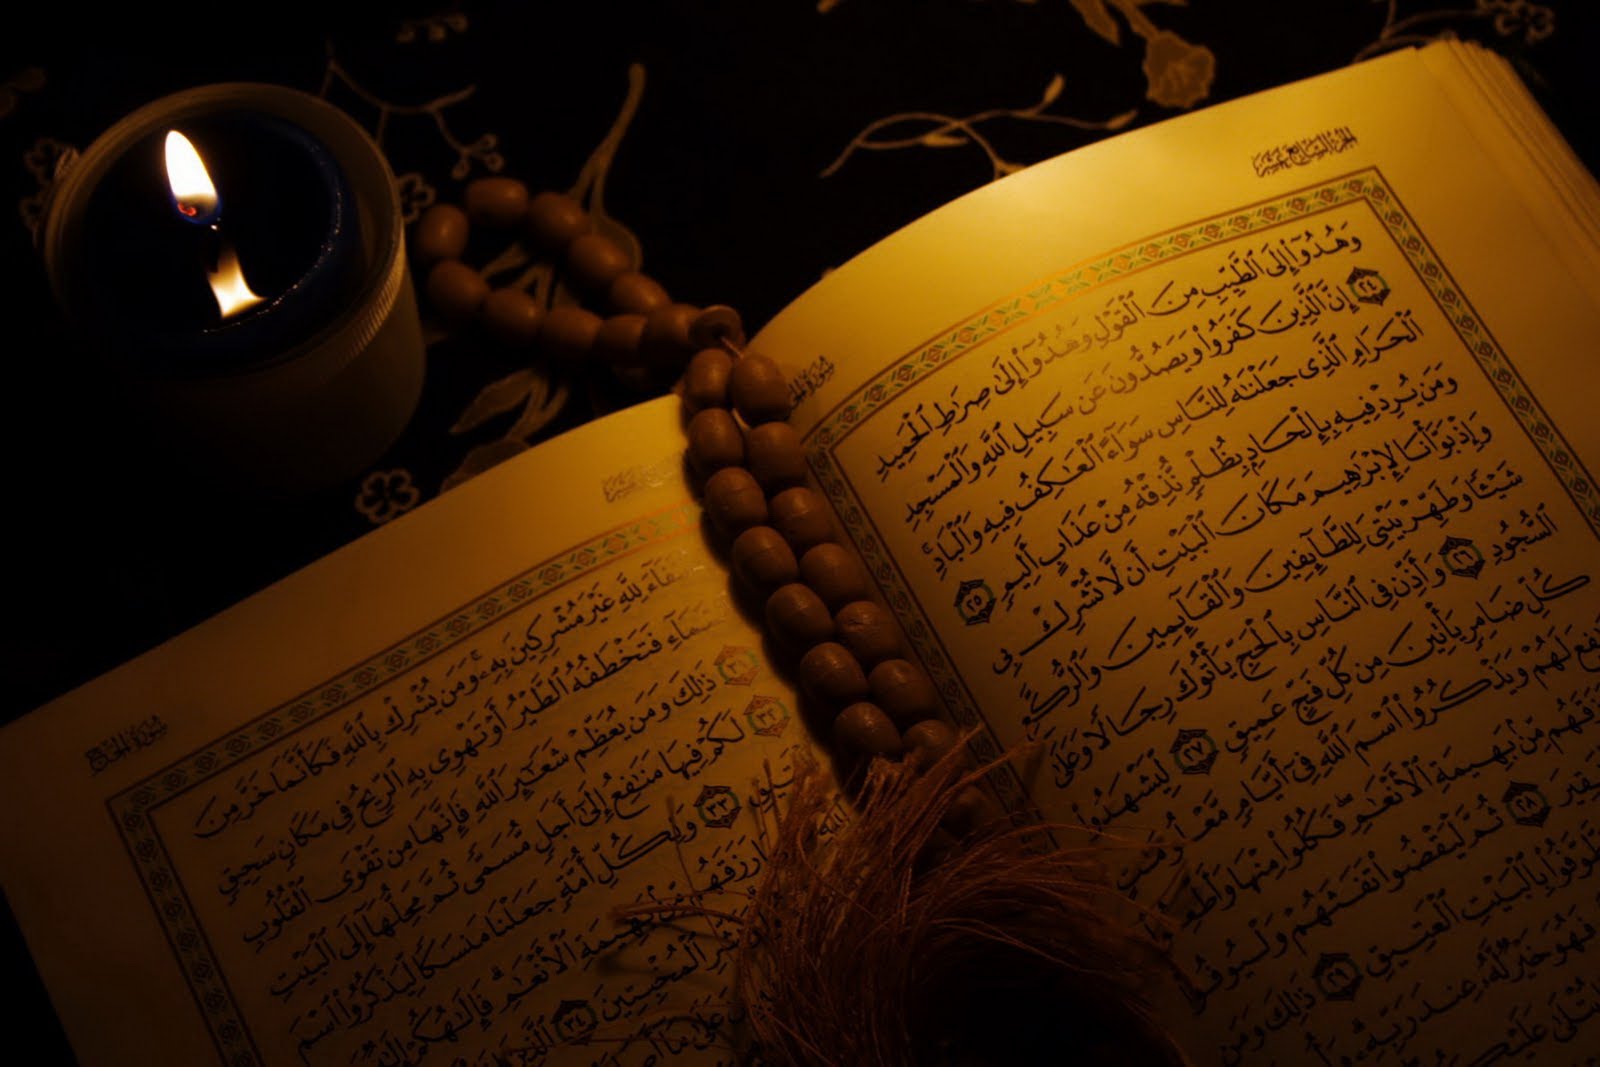 الجزء السابع عشر
وَهُدُوٓا۟ إِلَى ٱلطَّيِّبِ مِنَ ٱلْقَوْلِ وَهُدُوٓا۟ إِلَىٰ صِرَٰطِ ٱلْحَمِيدِ
٢٤ إِنَّ ٱلَّذِينَ كَفَرُوا۟ وَيَصُدُّونَ عَن سَبِيلِ ٱللَّهِ وَٱلْمَسْجِدِ
ٱلْحَرَامِ ٱلَّذِى جَعَلْنَٰهُ لِلنَّاسِ سَوَآءً ٱلْعَٰكِفُ فِيهِ وَٱلْبَادِ
وَمَن يُرِدْ فِيهِ بِإِلْحَادٍۭ بِظُلْمٍ نُّذِقْهُ مِنْ عَذَابٍ أَلِيمٍ ٢٥
وَإِذْ بَوَّأْنَا لِإِبْرَٰهِيمَ مَكَانَ ٱلْبَيْتِ أَن لَّا تُشْرِكْ بِى
شَيْـًٔا وَطَهِّرْ بَيْتِىَ لِلطَّآئِفِينَ وَٱلْقَآئِمِينَ وَٱلرُّكَّعِ
ٱلسُّجُودِ ٢٦ وَأَذِّن فِى ٱلنَّاسِ بِٱلْحَجِّ يَأْتُوكَ رِجَالًا وَعَلَىٰ
كُلِّ ضَامِرٍ يَأْتِينَ مِن كُلِّ فَجٍّ عَمِيقٍ ٢٧ لِّيَشْهَدُوا۟
لَهُمْ وَيَذْكُرُوا۟ ٱسْمَ ٱللَّهِ فِىٓ أَيَّامٍ مَّعْلُومَٰتٍ
مِّنۢ بَهِيمَةِ ٱلْأَنْعَٰمِ فَكُلُوا۟ مِنْهَا
٢٨ ثُمَّ لْيَقْضُوا۟ تَفَثَهُمْ وَلْيُوفُوا۟
بِٱلْبَيْتِ ٱلْعَتِيقِ ٢٩ ذَٰلِكَ وَمَن
فَهُوَ خَيْرٌ لَّهُۥ عِندَ رَبِّهِۦ
سورة الحج
لِلَّهِ غَيْرَ مُشْرِكِينَ بِهِۦ وَمَن يُشْرِكْ بِٱللَّهِ فَكَأَنَّمَا خَرَّ مِنَ
فَتَخْطَفُهُ ٱلطَّيْرُ أَوْ تَهْوِى بِهِ ٱلرِّيحُ فِى مَكَانٍ سَحِيقٍ
٣١ ذَٰلِكَ وَمَن يُعَظِّمْ شَعَٰٓئِرَ ٱللَّهِ فَإِنَّهَا مِن تَقْوَى ٱلْقُلُوبِ
٣٢ لَكُمْ فِيهَا مَنَٰفِعُ إِلَىٰٓ أَجَلٍ مُّسَمًّى ثُمَّ مَحِلُّهَآ إِلَى ٱلْبَيْتِ
٣٣ وَلِكُلِّ أُمَّةٍ جَعَلْنَا مَنسَكًا لِّيَذْكُرُوا۟ ٱسْمَ
ٱللَّهِ رَزَقَهُم مِّنۢ بَهِيمَةِ ٱلْأَنْعَٰمِ فَإِلَٰهُكُمْ إِلَٰهٌ
ٱلْمُخْبِتِينَ ٣٤ ٱلَّذِينَ